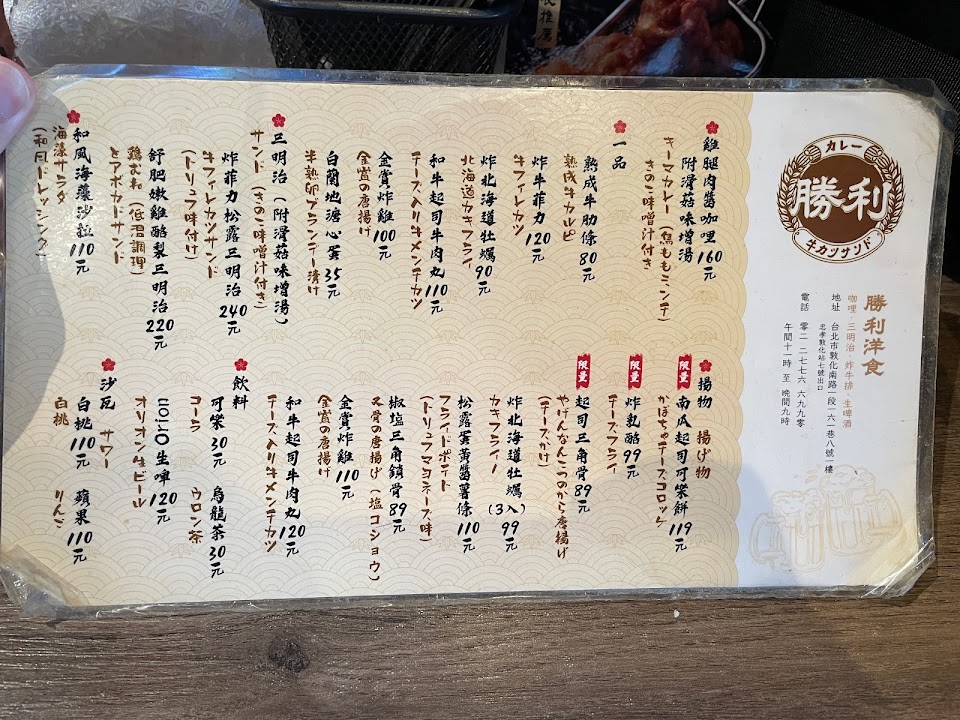 カレー
勝利
牛カツサンド
勝利洋食
咖哩·三明治·炸牛排·生啤酒
地址 台北市敦化南路一段一六一巷八號一樓
忠孝敦化站七號出口
電話 零二 二七七六 六九九零
午間十一時 至 晚間九時
雞腿肉醬咖哩160元
附滑菇味增湯
キーマカレー(鶏ももミンチ)
きのこ味噌汁付き
一品
熟成牛肋條80元
熟成牛カルビ
炸牛菲力120元
牛フィレカツ
炸北海道牡蠣90元
北海道カキフライ
和牛起司牛肉丸110元
チーズ入り牛メンチカツ
金賞炸雞100元
金賞の唐揚げ
白蘭地溏心蛋35元
半熟卵ブランデー漬け
三明治(附滑菇味增湯)
サンド(きのこ味噌汁付き)
炸菲力松露三明治240元
牛フィレカツサンド
(トリュフ味付け)
舒肥嫩雞酪梨三明治220元
鶏むね(低温調理)
とアボカドサンド
和風海藻沙拉110元
海藻サラダ
(和風ドレッシング)
揚物 揚げ物
限量 南瓜起司可樂餅119元
かぼちゃチーズコロッケ
限量 炸乳酪99元
チーズフライ
限量 起司三角骨89元
やげんなんこつのから唐揚げ
(チーズかけ)
炸北海道牡蠣(3入)99元
カキフライー
松露蛋黃醬薯條110元
フライドポテト
(トリュフマヨネーズ味)
椒塩三角鎖骨89元
骨の唐揚げ(塩コショウ)
金賞炸雞110元
金賞の唐揚げ
和牛起司牛肉丸120元
チーズ入り牛メンチカツ
飲料
可樂30元 烏龍茶30元
コーラ ウロン茶
Orion生啤120元
オリオン生ビール
沙瓦 サワー
白桃110元 蘋果110元
白桃 りんご